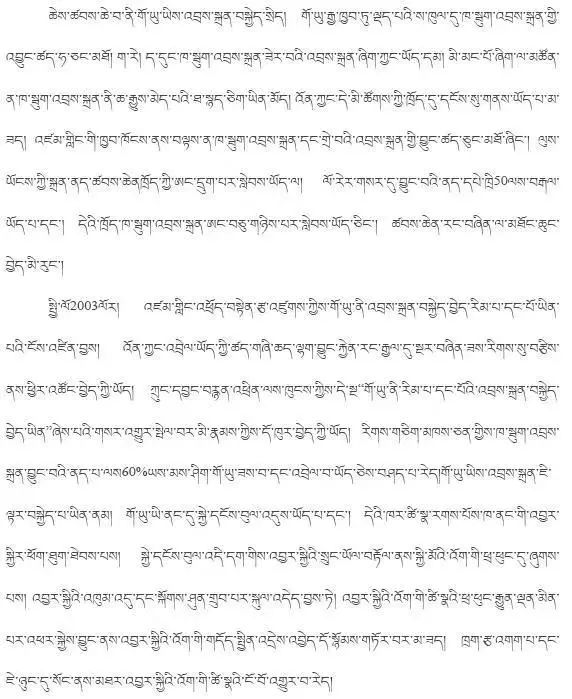 ཆེས་ཚབས་ཆེ་བ་ནི་གོ་ཡུ་ཡིས་འབྲས་སྐྲན་བསྐྱེད་སྲིད། གོ་ཡུ་རྒྱ་ཁྱབ་ཏུ་ལྡད་པའི་ས་ཁུལ་དུ་ཁ་སྦུག་འབྲས་སྐྲན་གྱི་
འབྱུང་ཚད་ཧ་ཅང་མཐོ། ག་རེ། ད་དུང་ཁ་སྦུག་འབྲས་སྐྲན་ཟེར་བའི་འབྲས་སྐྲན་ཞིག་ཀྱང་ཡོད་དམ། མི་མང་པོ་ཞིག་ལ་མཚོན་
ན་ཁ་སྦུག་འབྲས་སྐྲན་ནི་ཆ་རྒྱུས་མེད་པའི་ཐ་སྙད་ཅིག་ཡིན་མོད། འོན་ཀྱང་དེ་མི་ཚོགས་ཀྱི་ཁྲོད་དུ་དངོས་སུ་གནས་ཡོད་པ་མ་
ཟད། འཛམ་གླིང་གི་ཁྱབ་ཁོངས་ནས་བལྟས་ན་ཁ་སྦུག་འབྲས་སྐྲན་དང་གྲེ་བའི་འབྲས་སྐྲན་གྱི་བྱུང་ཚད་ཅུང་མཐོ་ཞིང་། ལུས་
ཡོངས་ཀྱི་སྐྲན་ནད་ཚབས་ཆེན་ཁྲོད་ཀྱི་ཨང་དྲུག་པར་སླེབས་ཡོད་ལ། ལོ་རེར་གསར་དུ་བྱུང་བའི་ནད་དཔེ་ཁྲི50ལས་བརྒལ་
ཡོད་པ་དང་། དེའི་ཁྲོད་ཁ་སྦུག་འབྲས་སྐྲན་ཨང་བཅུ་གཉིས་པར་སླེབས་ཡོད་ཅིང་། ཚབས་ཆེན་རང་བཞིན་ལ་མཐོང་ཆུང་
བྱེད་མི་རུང་།
སྤྱི་ལོ2003ལོར། འཛམ་གླིང་འཕྲོད་བསྟེན་རྩ་འཛུགས་ཀྱིས་གོ་ཡུ་ནི་འབྲས་སྐྲན་བསྐྱེད་བྱེད་རིམ་པ་དང་པོ་ཡིན་
པའི་ངོས་འཛིན་བྱས། འོན་ཀྱང་འབྲེལ་ཡོད་ཀྱི་ཚད་གཞི་ཆད་ལྷག་བྱུང་རྐྱེན་རང་རྒྱལ་དུ་སྔར་བཞིན་ཟས་རིགས་སུ་བརྩིས་
ནས་ཕྱིར་འཚོང་བྱེད་ཀྱི་ཡོད། ཀྲུང་དབྱང་བརྙན་འཕྲིན་ལས་ཁུངས་ཀྱིས་དེ་སྔ“གོ་ཡུ་ནི་རིམ་པ་དང་པོའི་འབྲས་སྐྲན་བསྐྱེད་
བྱེད་ཡིན”ཞེས་པའི་གསར་འགྱུར་སྤེལ་བར་མི་རྣམས་ཀྱིས་དོ་ཁུར་བྱེད་ཀྱི་ཡོད། རིགས་གཅིག་མཁས་ཅན་གྱིས་ཁ་སྦུག་འབྲས་
སྐྲན་བྱུང་བའི་ནད་པ་ལས60%ཡས་མས་ཤིག་གོ་ཡུ་ཟས་བ་དང་འབྲེལ་བ་ཡོད་ཅེས་བཤད་པ་རེད།གོ་ཡུ་ཡིས་འབྲས་སྐྲན་ཇི་
ལྟར་བསྐྱེད་པ་ཡིན་ནམ། གོ་ཡུ་ཡི་ནང་དུ་སྐྱེ་དངོས་བུལ་འདུས་ཡོད་པ་དང་། དེའི་ཁར་ཚི་སྣ་རགས་པོས་ཁ་ནང་གི་འབྱར་
སྐྱིར་ཕོག་ཐུག་ཐེབས་པས། སྐྱེ་དངོས་བུལ་འདི་དག་གིས་འབྱར་སྐྱིའི་སྲུང་ཡོལ་བརྟོལ་ནས་སྐྱི་མོའི་འོག་གི་ཕྲ་ཕུང་དུ་ཞུགས་
པས། འབྱར་སྐྱིའི་འཁུམ་འདུ་དང་སྐོགས་ཤུན་གྲུབ་པར་སྐུལ་འདེད་བྱས་ཏེ། འབྱར་སྐྱིའི་འོག་གི་ཚི་སྣའི་ཕྲ་ཕུང་རྒྱུན་ལྡན་མིན་
པར་འཕར་སྐྱེས་བྱུང་ནས་འབྱར་སྐྱིའི་འོག་གི་གདོད་སྤྱིན་འདྲེས་འབྱེད་དོ་སྙོམས་གཏོར་བར་མ་ཟད། ཁྲག་རྩ་འགག་པ་དང་
ཇེ་ཉུང་དུ་སོང་ནས་མཐར་འབྱར་སྐྱིའི་འོག་གི་ཚི་སྣའི་ངོ་བོ་འགྱུར་བ་རེད།